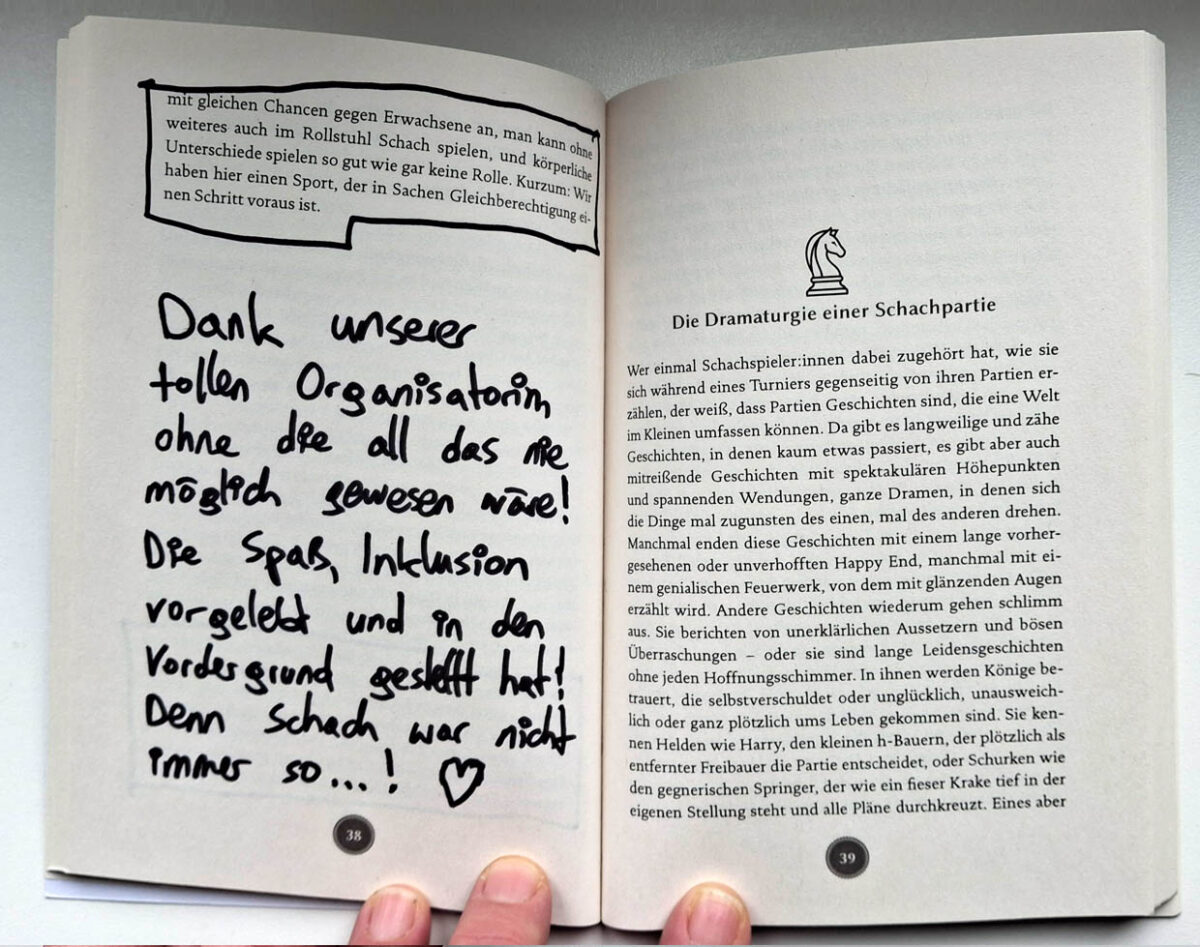 mit gleichen Chancen gegen Erwachsene an, man kann ohne
weiteres auch im Rollstuhl Schach spielen, und körperliche
Unterschiede spielen so gut wie gar keine Rolle. Kurzum: Wir
haben hier einen Sport, der in Sachen Gleichberechtigung ei-
nen Schritt voraus ist.
Dank unserer
tollen Organisatorin,
ohne die all das nie
möglich gewesen wäre!
Die Spaß, Inklusion
vorgelebt und in den
Vordergrund gestellt hat!
Denn Schach war nicht
immer so...! ♡
38
Die Dramaturgie einer Schachpartie
Wer einmal Schachspieler:innen dabei zugehört hat, wie sie
sich während eines Turniers gegenseitig von ihren Partien er-
zählen, der weiß, dass Partien Geschichten sind, die eine Welt
im Kleinen umfassen können. Da gibt es langweilige und zähe
Geschichten, in denen kaum etwas passiert, es gibt aber auch
mitreißende Geschichten mit spektakulären Höhepunkten
und spannenden Wendungen, ganze Dramen, in denen sich
die Dinge mal zugunsten des einen, mal des anderen drehen.
Manchmal enden diese Geschichten mit einem lange vorher-
gesehenen oder unverhofften Happy End, manchmal mit ei-
nem genialischen Feuerwerk, von dem mit glänzenden Augen
erzählt wird. Andere Geschichten wiederum gehen schlimm
aus. Sie berichten von unerklärlichen Aussetzern und bösen
Überraschungen – oder sie sind lange Leidensgeschichten
ohne jeden Hoffnungsschimmer. In ihnen werden Könige be-
trauert, die selbstverschuldet oder unglücklich, unausweich-
lich oder ganz plötzlich ums Leben gekommen sind. Sie ken-
nen Helden wie Harry, den kleinen h-Bauern, der plötzlich als
entfernter Freibauer die Partie entscheidet, oder Schurken wie
den gegnerischen Springer, der wie ein fieser Krake tief in der
eigenen Stellung steht und alle Pläne durchkreuzt. Eines aber
39